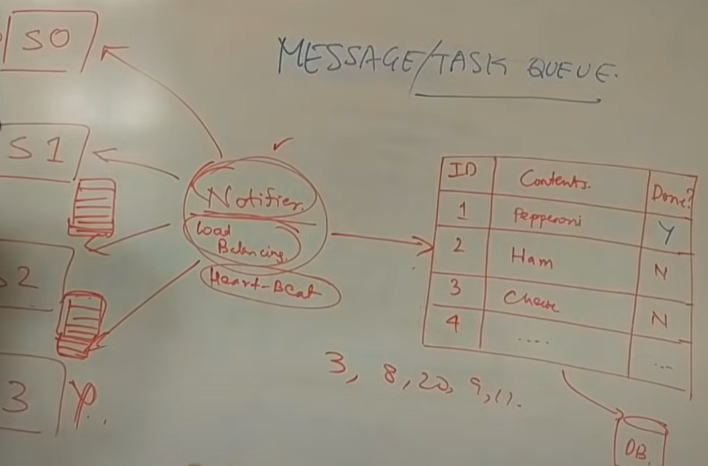 MESSAGE/TASK QUEUE.
S0
S1
S2
3
Notifier
Load
Balancing
Heart-Beat
ID Contents. Done?
1 Pepperoni Y
2 Ham N
3 Cheese N
4 .... ...
3, 8, 20, 9, 11.
DB.